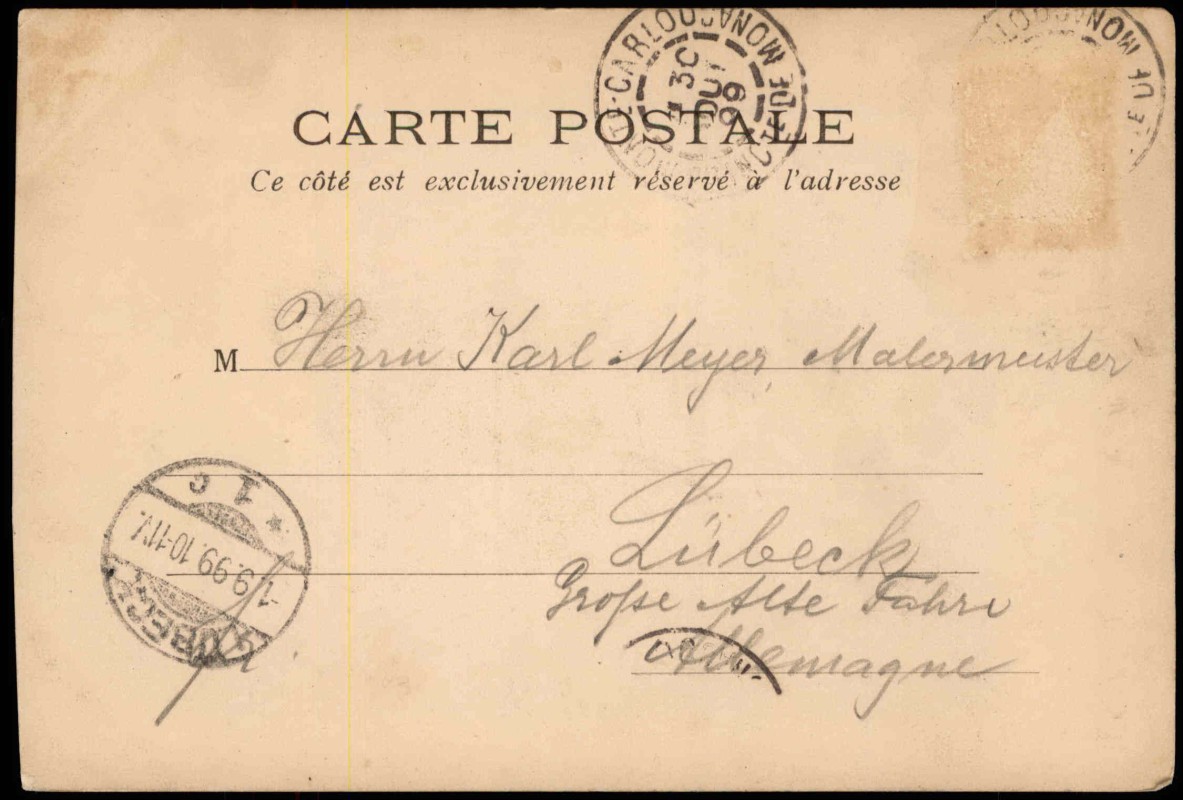 MONTE-CARLO PCTE DE MONACO
4E 30 AOUT 99
CARTE POSTALE
Ce côté est exclusivement réservé à l'adresse
M Herrn Karl Meyer, Malermeister
Lübeck
Große Alte Fähre
Allemagne
LÜBECK
1.9.99.10-11V.
* 1 c